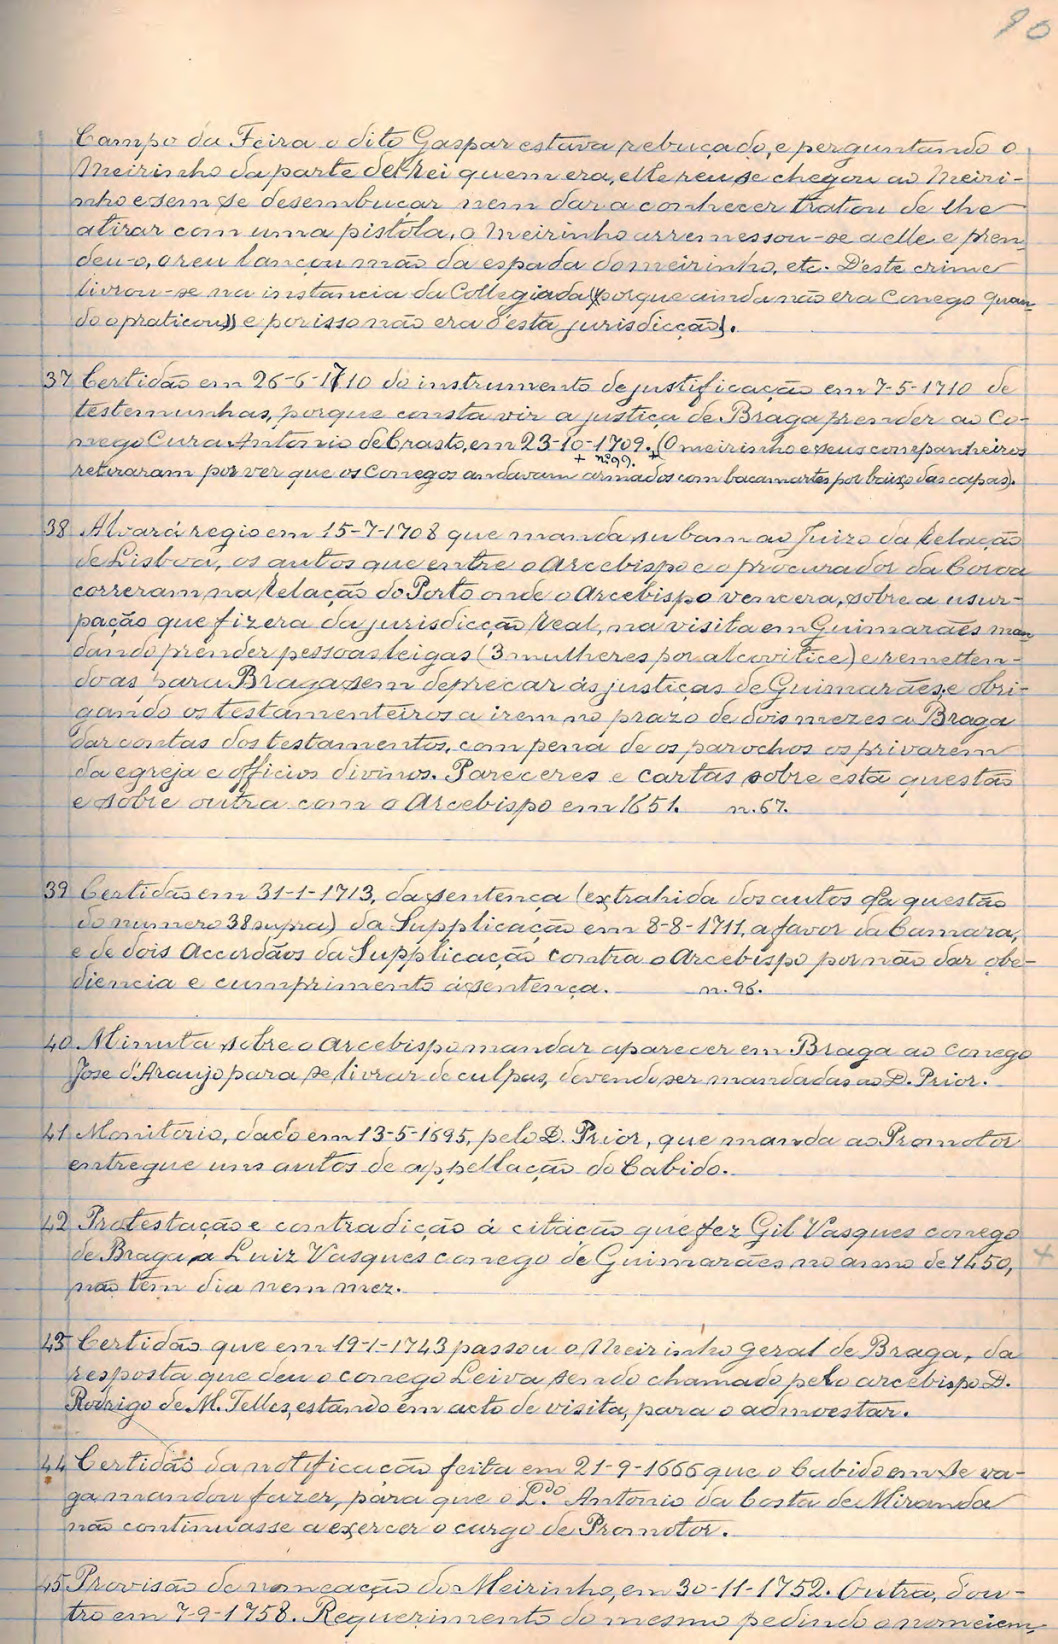 90
Campo da Feira o dito Gaspar estava rebuçado, e perguntando o
Meirinho da parte del Rei quem era, elle reu se chegou ao Meiri-
nho e sem se desembucar nem dar a conhecer tratou de lhe
atirar com uma pistola, o Meirinho arremessou-se a elle e pren
deu-o, o reu lançou mão da espada do meirinho, etc. D'este crime
livrou-se na instancia da Collegiada (porque ainda não era Conego quan-
do o praticou) e por isso não era d'esta jurisdicção).
37 Certidão em 26-6-1710 do instrumento de justificação em 7-5-1710 de
testemunhas, porque consta vir a justiça de Braga prender ao Co-
nego Cura Antonio de Crasto, em 23-10-1709. (O meirinho e seus companheiros
+ nº 99. +
retiraram por ver que os Conegos andavam armados com bacamartes por baixo das capas).
38 Alvará regio em 15-7-1708 que manda subam ao Juizo da Relação
de Lisboa, os autos que entre o Arcebispo e o procurador da Coroa
correram na Relação do Porto onde o Arcebispo vencera, sobre a usur-
pação que fizera da jurisdicção Real, na visita em Guimarães man
dando prender pessoas leigas (3 mulheres por alcovitice) e remetten-
do as para Braga sem deprecar ás justiças de Guimarães, e obri-
gando os testamenteiros a irem no prazo de dois mezes a Braga
dar contas dos testamentos, com pena de os parochos os privarem
da egreja e officios divinos. Pareceres e cartas sobre esta questão
e sobre outra com o Arcebispo em 1651. n. 67.
39 Certidão em 31-1-1713, da sentença (extrahida dos autos da questão
do numero 38 supra) da Supplicação em 8-8-1711, a favor da Camara,
e de dois Accordãos da Supplicação contra o Arcebispo por não dar obe-
diencia e cumprimento á sentença. n. 96.
40 Minuta sobre o Arcebispo mandar aparecer em Braga ao Conego
José d'Araujo para se livrar de culpas, devendo ser mandadas ao D. Prior.
41 Monitorio, dado em 13-5-1695, pelo D. Prior, que manda ao Promotor
entregue uns autos de appellação do Cabido.
42 Protestação e contradição á citação que fez Gil Vasques conego
de Braga a Luiz Vasques conego de Guimarães no anno de 1450, +
não tem dia nem mez.
43 Certidão que em 19-1-1743 passou o Meirinho geral de Braga, da
resposta que deu o conego Leiva sendo chamado pelo arcebispo D.
Rodrigo de M. Telles, estando em acto de visita, para o admoestar.
44 Certidão da notificação feita em 21-9-1666 que o Cabido em Se va-
ga mandou fazer, para que o L.do Antonio da Costa de Miranda
não continuasse a exercer o cargo de Promotor.
45 Provisão de nomeação do Meirinho, em 30-11-1752. Outra, d'ou-
tro em 7-9-1758. Requerimento do mesmo pedindo o nomeiem